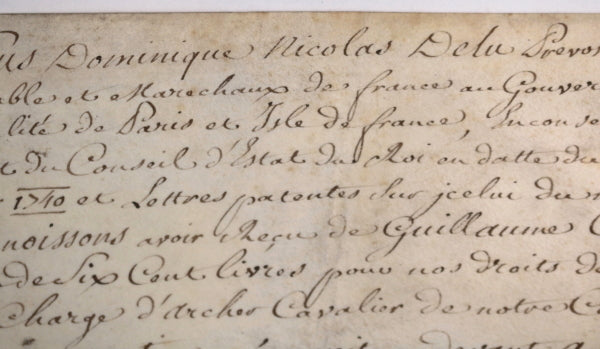 us Dominique Nicolas Delu Prevos
able et Marechaux de france au Gouver
lité de Paris et Isle de france, Inconse
t du Conseil d'Estat du Roi en datte du
1740 et Lettres patentes Sur jcelui du
noissons avoir Reçu de Guillaume
de Six Cent livres pour nos droits de
Charge d'Archer Cavalier de notre Co